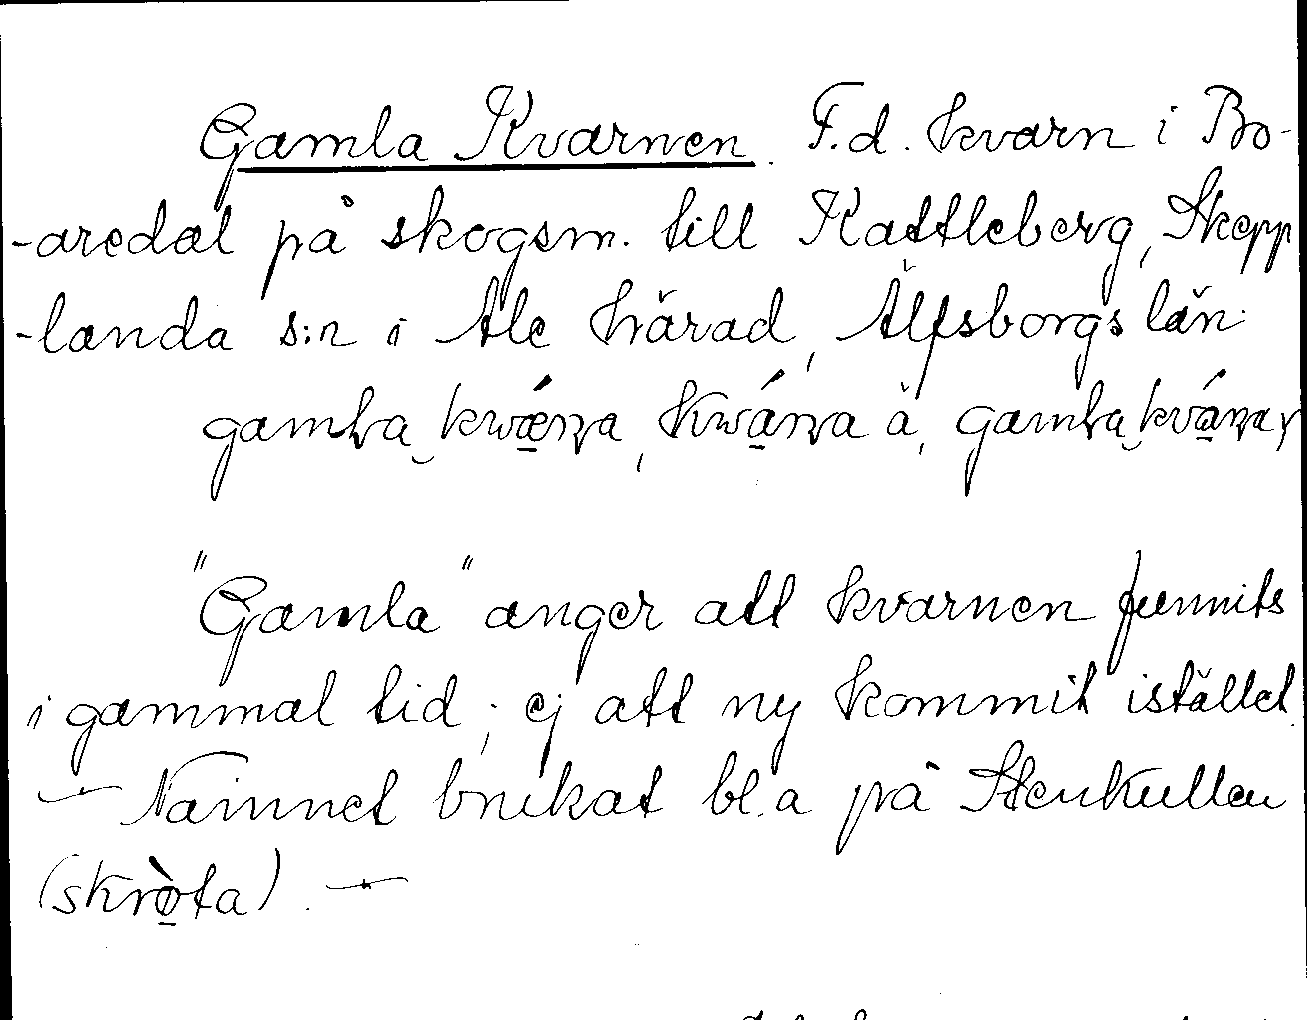 Gamla Kvarnen. F.d. kvarn i Bo-
-aredal på skogsm. till Kattleberg, Skepp
-landa s:n i Ale härad, Älfsborgs län.
gamla kwæṇa, kwáṇa å, gamla kváṇaṛ
"Gamla" anger att kvarnen funnits
i gammal tid; ej att ny kommit istället.
— Namnet brukat bl.a på Stenkullen
(skròta). —